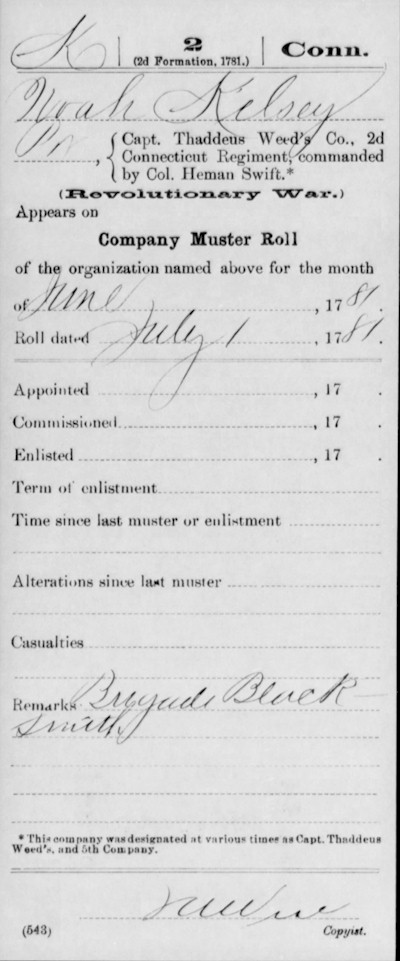 K | 2 (2d Formation, 1781.) | Conn.
Noah Kelsey
Pvt, { Capt. Thaddeus Weed's Co., 2d
Connecticut Regiment, commanded
by Col. Heman Swift.*
(Revolutionary War.)
Appears on
Company Muster Roll
of the organization named above for the month
of June, 1781.
Roll dated July 1, 1781.
Appointed, 17 .
Commissioned, 17 .
Enlisted, 17 .
Term of enlistment
Time since last muster or enlistment
Alterations since last muster
Casualties
Remarks Brigade Black-
smith
* This company was designated at various times as Capt. Thaddeus
Weed's, and 5th Company.
(543) Copyist.